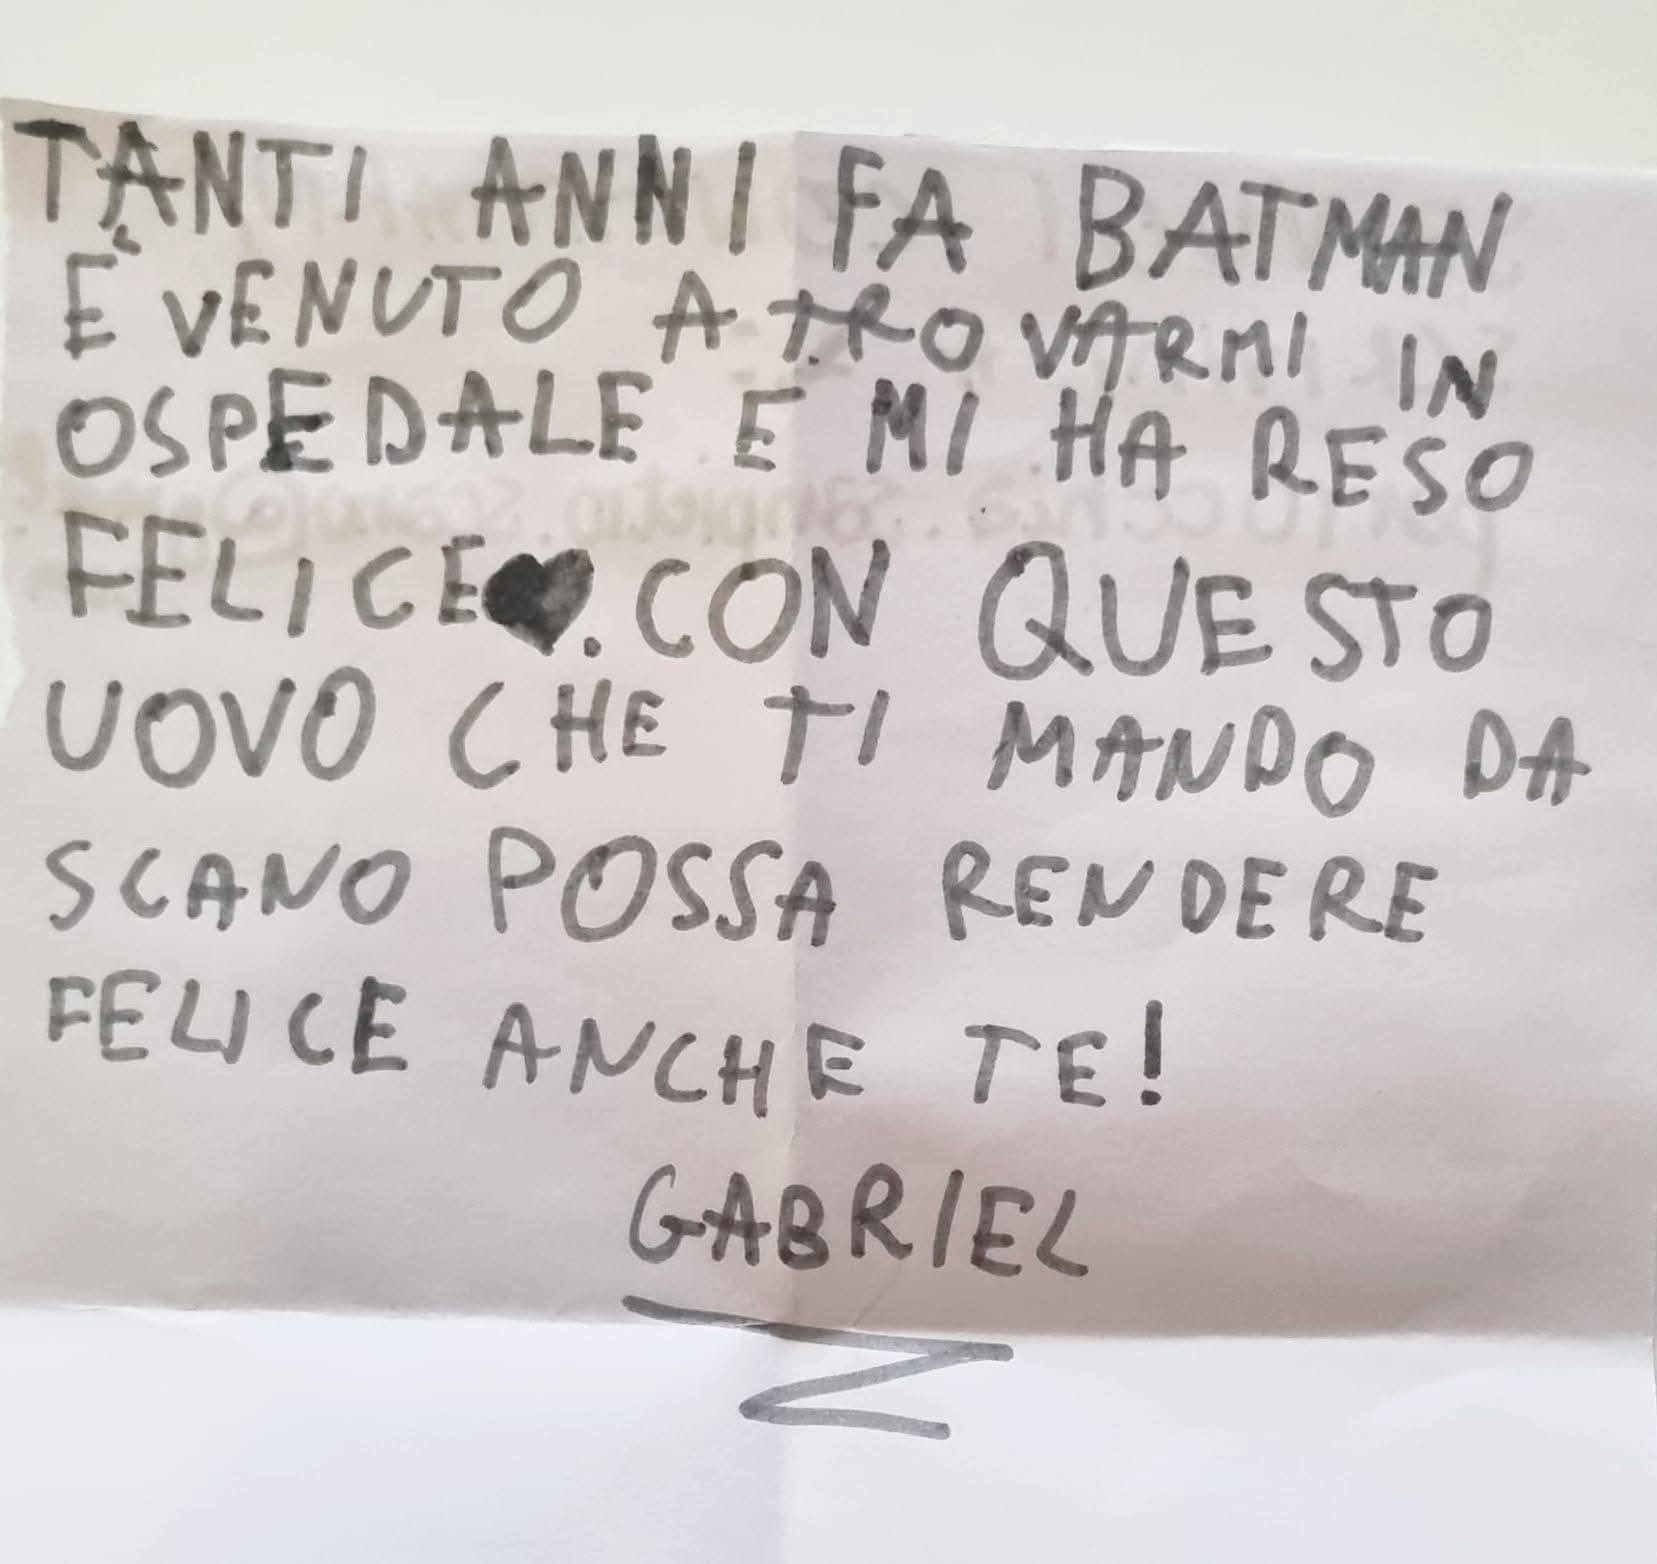 TANTI ANNI FA BATMAN
È VENUTO A TROVARMI IN
OSPEDALE E MI HA RESO
FELICE♥. CON QUESTO
UOVO CHE TI MANDO DA
SCANO POSSA RENDERE
FELICE ANCHE TE!
GABRIEL